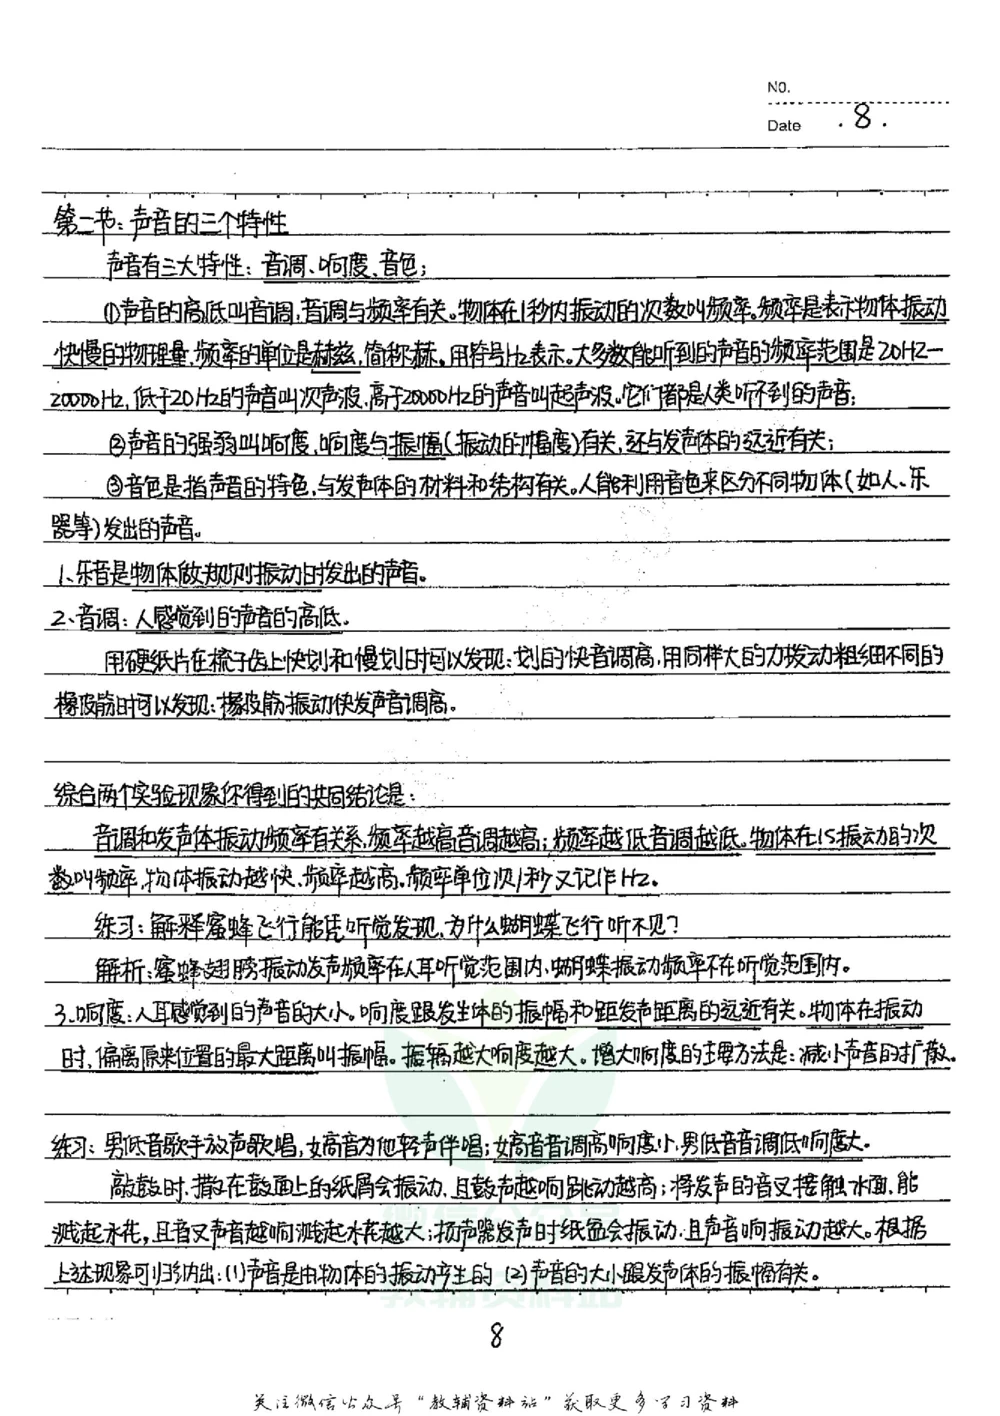 No.
Date . 8 .
第二节：声音的三个特性
声音有三大特性：音调、响度、音色；
①声音的高低叫音调，音调与频率有关。物体在1秒内振动的次数叫频率。频率是表示物体振动
快慢的物理量，频率的单位是赫兹，简称赫。用符号Hz表示。大多数能听到的声音的频率范围是20Hz—
20000Hz，低于20Hz的声音叫次声波，高于20000Hz的声音叫超声波。它们都是人类听不到的声音；
②声音的强弱叫响度，响度与振幅（振动的幅度）有关，还与发声体的远近有关；
③音色是指声音的特色，与发声体的材料和结构有关。人能利用音色来区分不同物体（如人、乐
器等）发出的声音。
1、乐音是物体做规则振动时发出的声音。
2、音调：人感觉到的声音的高低。
用硬纸片在梳子齿上快划和慢划时可以发现：划的快音调高，用同样大的力拨动粗细不同的
橡皮筋时可以发现：橡皮筋振动快发声音调高。
综合两个实验现象你得到的共同结论是：
音调和发声体振动频率有关系，频率越高音调越高；频率越低音调越低。物体在1S振动的次
数叫频率，物体振动越快，频率越高。频率单位次/秒又记作Hz。
练习：解释蜜蜂飞行能凭听觉发现，为什么蝴蝶飞行听不见？
解析：蜜蜂翅膀振动发声频率在人耳听觉范围内，蝴蝶振动频率不在听觉范围内。
3、响度：人耳感觉到的声音的大小。响度跟发生体的振幅和距发声距离的远近有关。物体在振动
时，偏离原来位置的最大距离叫振幅。振幅越大响度越大。增大响度的主要方法是：减小声音的扩散。
练习：男低音歌手放声歌唱，女高音为他轻声伴唱；女高音音调高响度小，男低音音调低响度大。
敲鼓时，撒在鼓面上的纸屑会振动，且鼓声越响跳动越高；将发声的音叉接触水面，能
溅起水花，且音叉声音越响溅起水花越大；扬声器发声时纸盆会振动，且声音响振动越大。根据
上述现象可归纳出：(1)声音是由物体的振动产生的 (2)声音的大小跟发声体的振幅有关。
8
关注微信公众号“教辅资料站”获取更多学习资料
微信公众号
教辅资料站